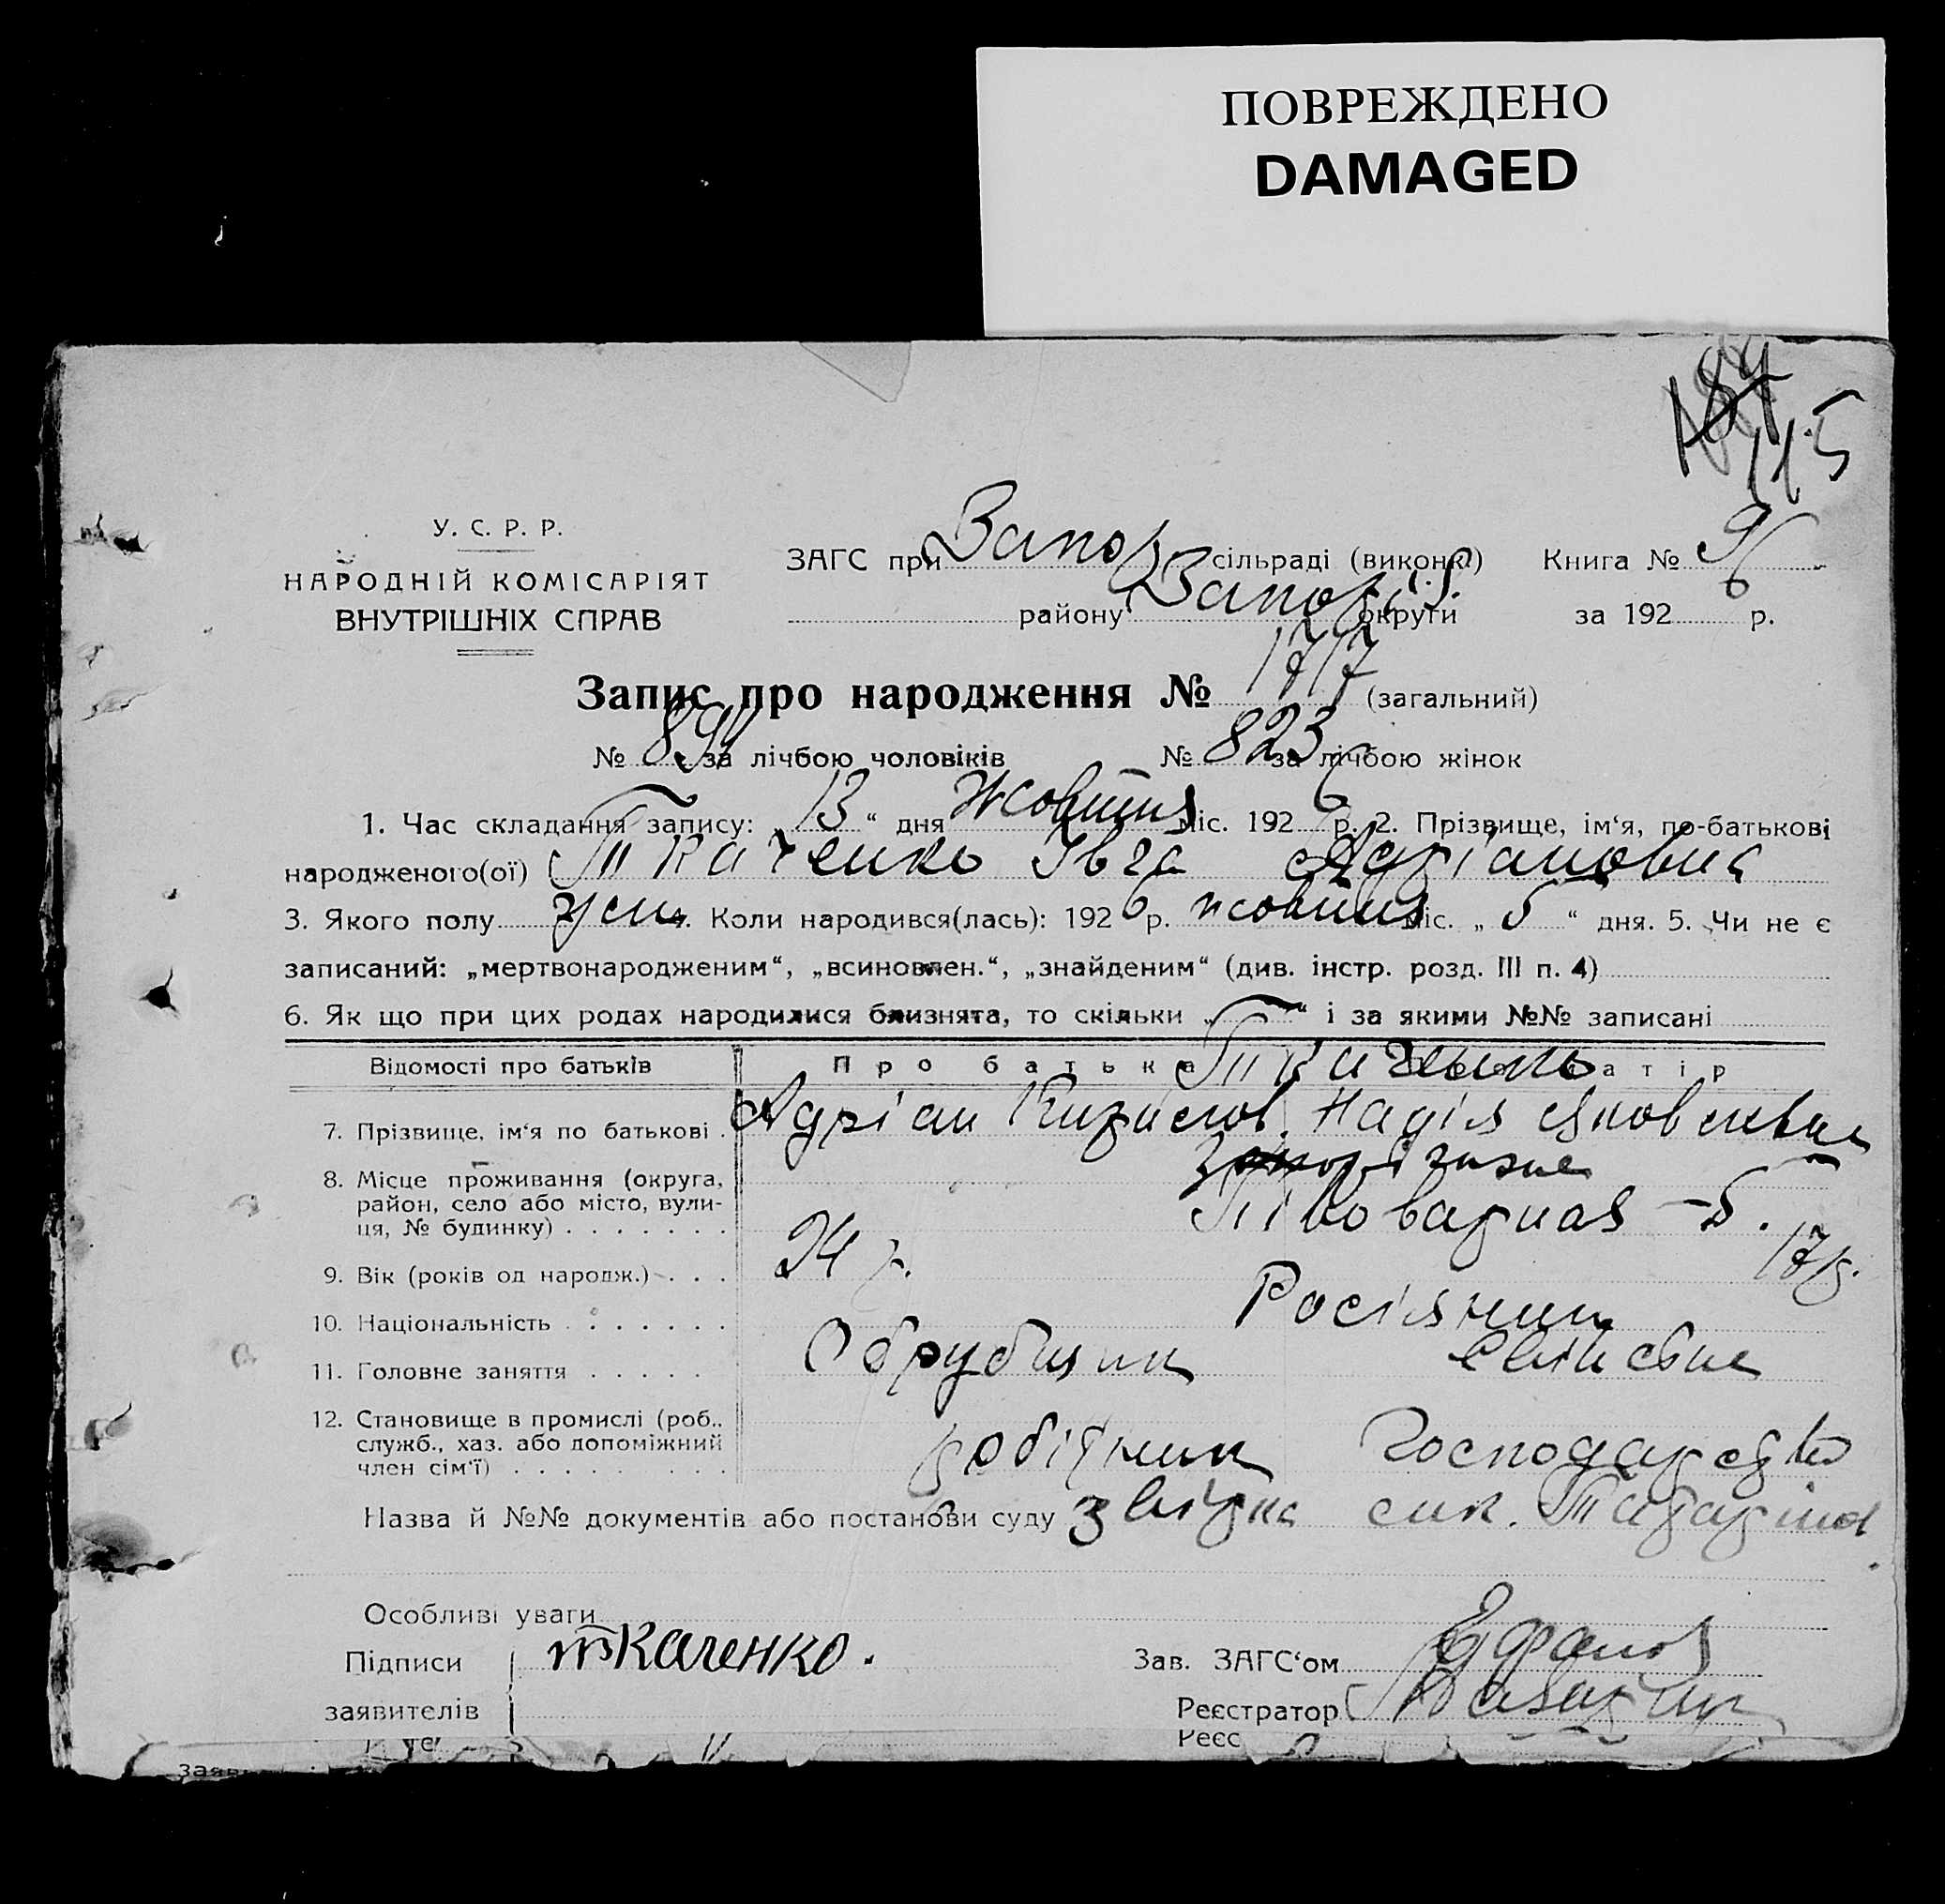 ПОВРЕЖДЕНО
DAMAGED
184
115
У. С. Р. Р.
НАРОДНІЙ КОМІСАРІЯТ
ВНУТРІШНІХ СПРАВ
ЗАГС при Запор сільраді (викомк) Книга № 9
району Запоріз. округи за 1926 р.
Запис про народження № 1717 (загальний)
№ 894 за лічбою чоловіків № 823 за лічбою жінок
1. Час складання запису: „13“ дня Жовтня міс. 1926 р. 2. Прізвище, ім‘я, по-батькові
народженого(ої) Ткаченко Івга Адріановна
3. Якого полу жін 4. Коли народився(лась): 1926 р. жовтня міс. „5“ дня. 5. Чи не є
записаний: „мертвонародженим“, „всиновлен.“, „знайденим“ (див. інстр. розд. III п. 4)
6. Як що при цих родах народилися близнята, то скільки „ “ і за якими №№ записані
Відомості про батьків Про батька Ткаченко матір
7. Прізвище, ім‘я по батькові Адріан Надія Яковлевна
8. Місце проживання (округа, Запоріжжє
район, село або місто, вули- Пивоварная – 5.
ця, № будинку)
9. Вік (років од народж.) 24 р. 17 р.
10. Національність Росіянин
11. Головне заняття Обрубщик
12. Становище в промислі (роб., робітник Господарство
служб., хаз. або допоміжний
член сім‘ї)
Назва й №№ документів або постанови суду
Особливі уваги
Підписи Ткаченко. Зав. ЗАГС‘ом
заявителів Реєстратор
Реєс
заяв